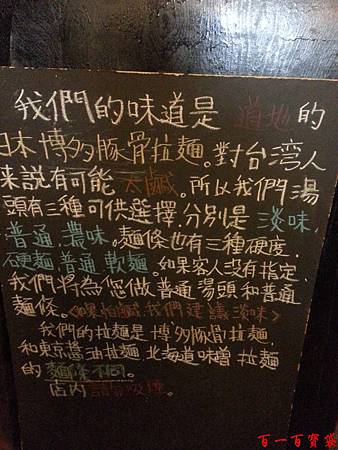 我們的味道是 道地的
日本博多豚骨拉麵。對台湾人
來説有可能太鹹。所以我們湯
頭有三種可供選擇,分別是 淡味,
普通,濃味。麵條也有三種硬度,
硬麵,普通,軟麵。如果客人没有指定,
我們將為您做普通湯頭和普通
麵條。<如果怕鹹我們建議淡味>
我們的拉麵是博多豚骨拉麵,
和東京醬油拉麵 北海道味噌 拉麵
的 麵條不同。
店内請勿吸煙。
百一百寶箱